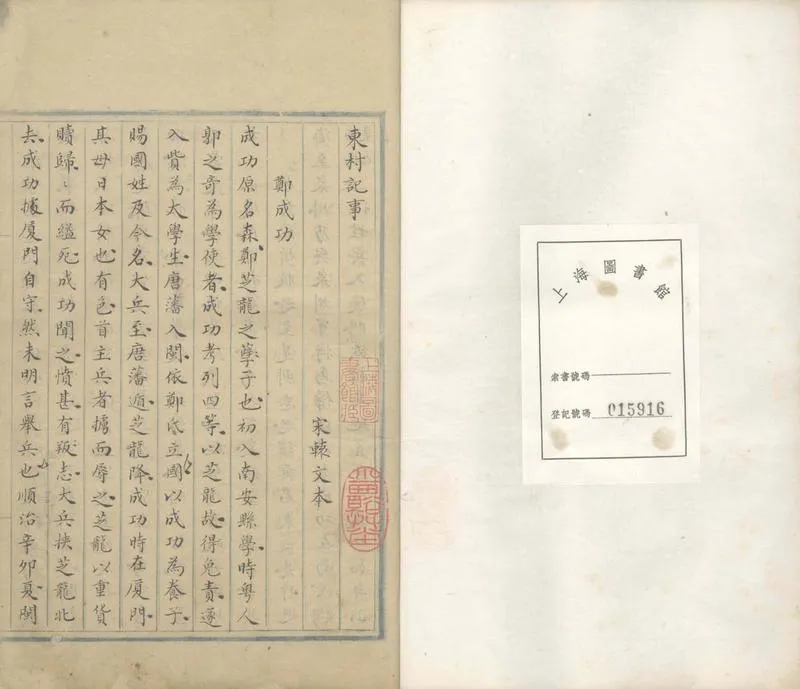 上海圖書館
索書號碼
登記號碼 015916
東村記事
宋轅文本
鄭成功
成功原名森鄭芝龍之孽子也初入南安縣學時粵人
郭之奇為學使者成功考列四等以芝龍故得免責遂
入貲為太學生唐藩入閩依鄭氏立國以成功為養子
賜國姓及今名大兵至唐藩遁芝龍降成功時在厦門
其母日本女也有色首主兵者擄而辱之芝龍以重貨
贖歸〻而縊死成功聞之憤甚有叛志大兵挾芝龍北
去成功據厦門自守然未明言舉兵也順治辛卯夏閩
上海圖書館藏